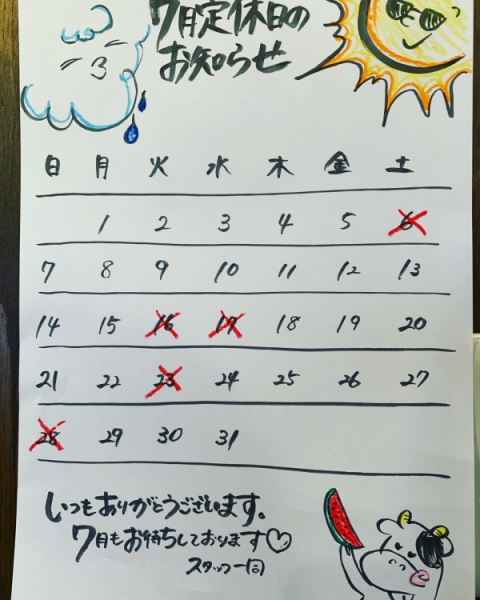 7月定休日の
お知らせ
日 月 火 水 木 金 土
1 2 3 4 5 6
7 8 9 10 11 12 13
14 15 16 17 18 19 20
21 22 23 24 25 26 27
28 29 30 31
いつもありがとうございます。
7月もお待ちしております♡
スタッフ一同